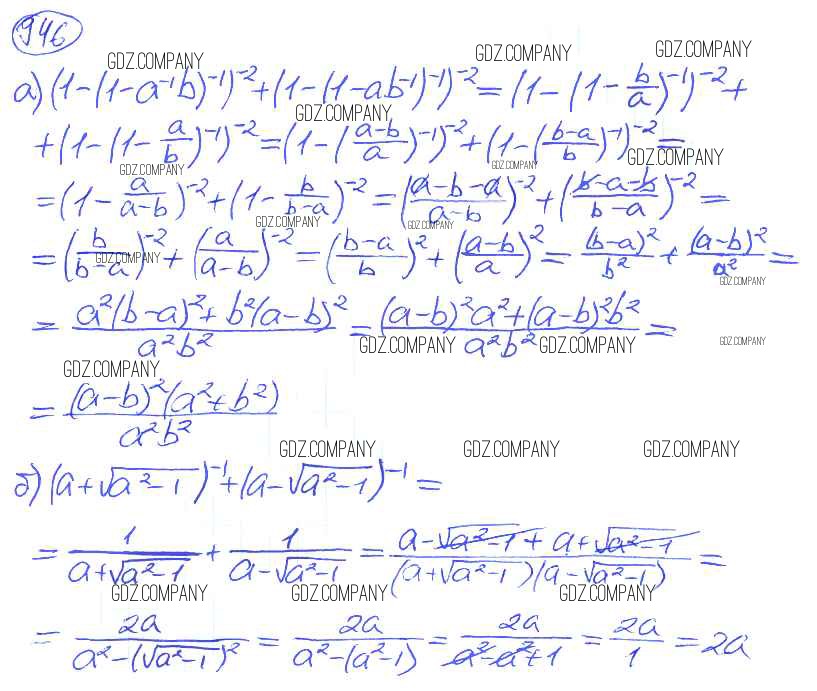 946
GDZ.COMPANY GDZ.COMPANY GDZ.COMPANY
а) (1-(1-a⁻¹b)⁻¹)⁻²+(1-(1-ab⁻¹)⁻¹)⁻² = (1-(1-b/a)⁻¹)⁻² +
GDZ.COMPANY
+(1-(1-a/b)⁻¹)⁻² = (1-((a-b)/a)⁻¹)⁻² + (1-((b-a)/b)⁻¹)⁻² =
GDZ.COMPANY GDZ.COMPANY GDZ.COMPANY
= (1 - a/(a-b))⁻² + (1 - b/(b-a))⁻² = ((a-b-a)/(a-b))⁻² + ((b-a-b)/(b-a))⁻² =
GDZ.COMPANY GDZ.COMPANY
= (b/(b-a))⁻² + (a/(a-b))⁻² = ((b-a)/b)² + ((a-b)/a)² = (b-a)²/b² + (a-b)²/a² =
GDZ.COMPANY GDZ.COMPANY
= (a²(b-a)²+b²(a-b)²)/(a²b²) = ((a-b)²a²+(a-b)²b²)/(a²b²) =
GDZ.COMPANY GDZ.COMPANY GDZ.COMPANY
GDZ.COMPANY
= ((a-b)²(a²+b²))/(a²b²)
GDZ.COMPANY GDZ.COMPANY GDZ.COMPANY
б) (a+√(a²-1))⁻¹+(a-√(a²-1))⁻¹ =
= 1/(a+√(a²-1)) + 1/(a-√(a²-1)) = (a-√(a²-1) + a+√(a²-1))/((a+√(a²-1))(a-√(a²-1))) =
GDZ.COMPANY GDZ.COMPANY GDZ.COMPANY
= 2a/(a²-(√(a²-1))²) = 2a/(a²-(a²-1)) = 2a/(a²-a²+1) = 2a/1 = 2a